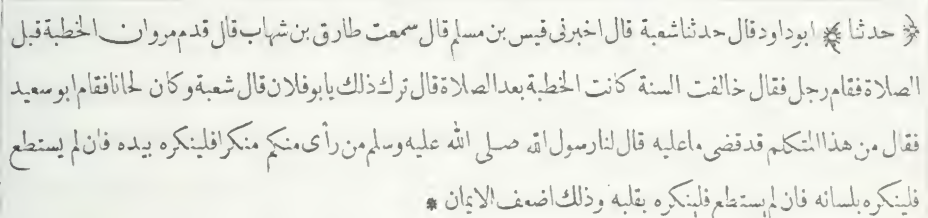 ﴿ حدثنا ﴾ ابوداود قال حدثنا شعبة قال اخبرنى قيس بن مسلم قال سمعت طارق بن شهاب قال قدم مروان الخطبة قبل
الصلاة فقام رجل فقال خالفت السنة كانت الخطبة بعد الصلاة قال ترك ذلك يابو فلان قال شعبة وكان لحانا فقام ابو سعيد
فقال من هذا المتكلم قد قضى ما عليه قال لنا رسول الله صلى الله عليه وسلم من رأى منكم منكرا فلينكره بيده فان لم يستطع
فلينكره بلسانه فان لم يستطع فلينكره بقلبه وذلك اضعف الايمان *